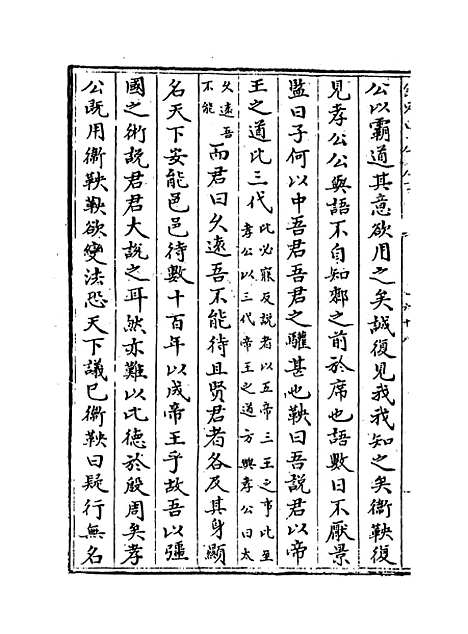 公以霸道其意欲用之矣誠復見我我知之矣衞鞅復
見孝公公與語不自知䣛之前於席也語數日不厭景
監曰子何以中吾君吾君之驩甚也鞅曰吾說君以帝
王之道比三代比必寐反說者以五帝三王之事比至
孝公以三代帝王之道方興孝公曰太
久遠吾
不能
而君曰久遠吾不能待且賢君者各及其身顯
名天下安能邑邑待數十百年以成帝王乎故吾以彊
國之術說君君大說之耳然亦難以比德於殷周矣孝
公既用衞鞅鞅欲變法恐天下議已衞鞅曰疑行無名